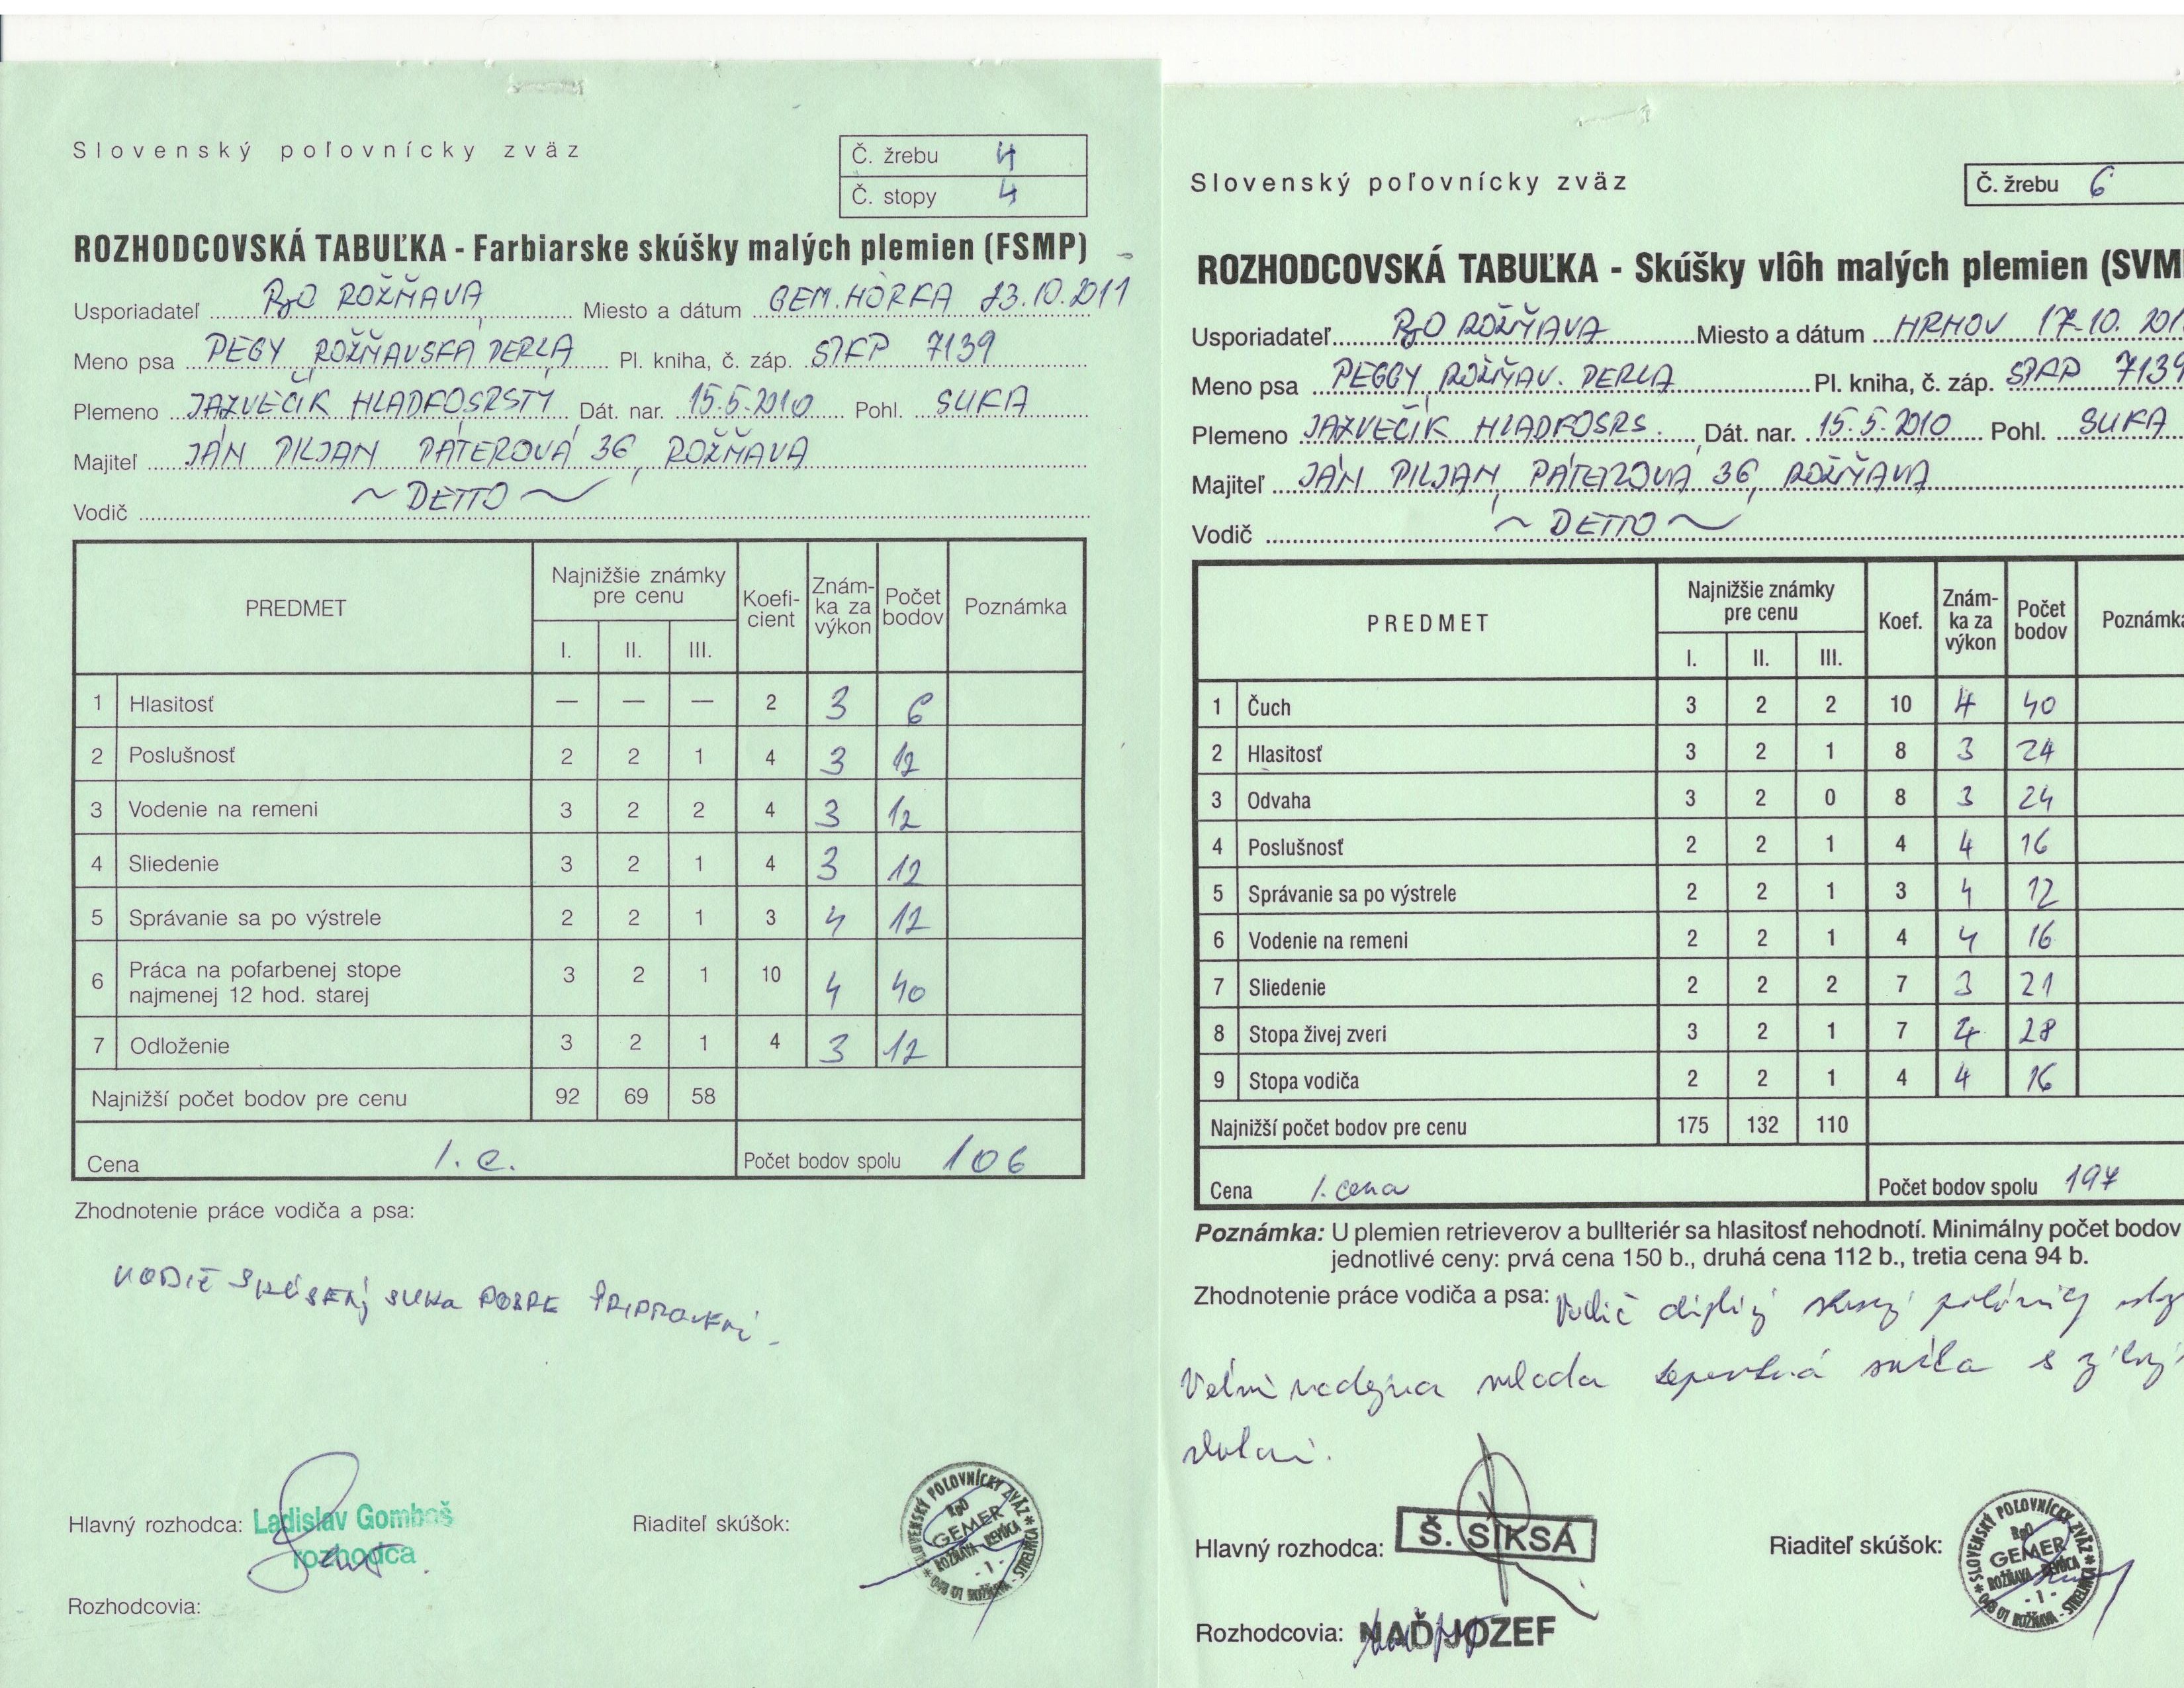 Slovenský poľovnícky zväz
Č. žrebu 4
Č. stopy 4
ROZHODCOVSKÁ TABUĽKA - Farbiarske skúšky malých plemien (FSMP)
Usporiadateľ RgO ROŽŇAVA Miesto a dátum GEM. HÔRKA 23.10.2011
Meno psa PEGY ROŽŇAVSKÁ PERLA Pl. kniha, č. záp. SPKP 7139
Plemeno JAZVEČÍK HLADKOSRSTÝ Dát. nar. 15.5.2010 Pohl. SUKA
Majiteľ JÁN PILJAN PÁTEROVÁ 36, ROŽŇAVA
Vodič ~ DETTO ~
PREDMET Najnižšie známky pre cenu Koefi-cient Znám-ka za výkon Počet bodov Poznámka
I. II. III.
1 Hlasitosť — — — 2 3 6
2 Poslušnosť 2 2 1 4 3 12
3 Vodenie na remeni 3 2 2 4 3 12
4 Sliedenie 3 2 1 4 3 12
5 Správanie sa po výstrele 2 2 1 3 4 12
6 Práca na pofarbenej stope
najmenej 12 hod. starej 3 2 1 10 4 40
7 Odloženie 3 2 1 4 3 12
Najnižší počet bodov pre cenu 92 69 58
Cena I. c. Počet bodov spolu 106
Zhodnotenie práce vodiča a psa:
VODIČ SKÚSENÝ SUKA DOBRE PRIPRAVENÁ
Hlavný rozhodca: Ladislav Gomboš
rozhodca
Riaditeľ skúšok:
SLOVENSKÝ POĽOVNÍCKY ZVÄZ
RgO
GEMER
ROŽŇAVA - REVÚCA
- 1 -
048 01 ROŽŇAVA - STRELNICA
Rozhodcovia:
Slovenský poľovnícky zväz
Č. žrebu 6
ROZHODCOVSKÁ TABUĽKA - Skúšky vlôh malých plemien (SVM
Usporiadateľ RgO ROŽŇAVA Miesto a dátum HRHOV 17.10. 201
Meno psa PEGGY ROŽŇAV. PERLA Pl. kniha, č. záp. SPKP 7139
Plemeno JAZVEČÍK HLADKOSRS. Dát. nar. 15.5.2010 Pohl. SUKA
Majiteľ JÁN PILJAN, PÁTEROVÁ 36, ROŽŇAVA
Vodič ~ DETTO ~
PREDMET Najnižšie známky pre cenu Koef. Znám-ka za výkon Počet bodov Poznámka
I. II. III.
1 Čuch 3 2 2 10 4 40
2 Hlasitosť 3 2 1 8 3 24
3 Odvaha 3 2 0 8 3 24
4 Poslušnosť 2 2 1 4 4 16
5 Správanie sa po výstrele 2 2 1 3 4 12
6 Vodenie na remeni 2 2 1 4 4 16
7 Sliedenie 2 2 2 7 3 21
8 Stopa živej zveri 3 2 1 7 4 28
9 Stopa vodiča 2 2 1 4 4 16
Najnižší počet bodov pre cenu 175 132 110
Cena I. cena Počet bodov spolu 197
Poznámka: U plemien retrieverov a bullteriér sa hlasitosť nehodnotí. Minimálny počet bodov
jednotlivé ceny: prvá cena 150 b., druhá cena 112 b., tretia cena 94 b.
Zhodnotenie práce vodiča a psa: Vodič
mladá s
Hlavný rozhodca: Š. SIKSA
Riaditeľ skúšok:
SLOVENSKÝ POĽOVNÍCKY ZVÄZ
RgO
GEMER
ROŽŇAVA - REVÚCA
- 1 -
048 01 ROŽŇAVA - STRELNICA
Rozhodcovia: NAĎ JOZEF